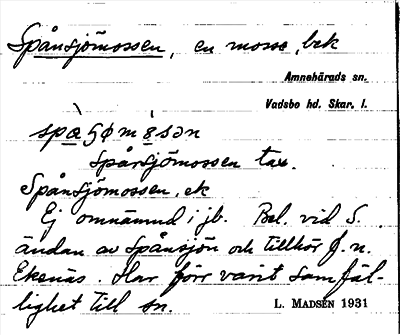 Spånsjömossen, en mosse, bek
Amnehärads sn.
Vadsbo hd. Skar. l.
spà̱ʂøm ò̱sən
Spånsjömossen tax.
Spånsjömossen, ek
Ej omnämnd i jb. Bel. vid S.
ändan av Spånsjön och tillhör f.n.
Ekenäs. Har förr varit samfäl-
lighet till sn.
L. MADSÉN 1931